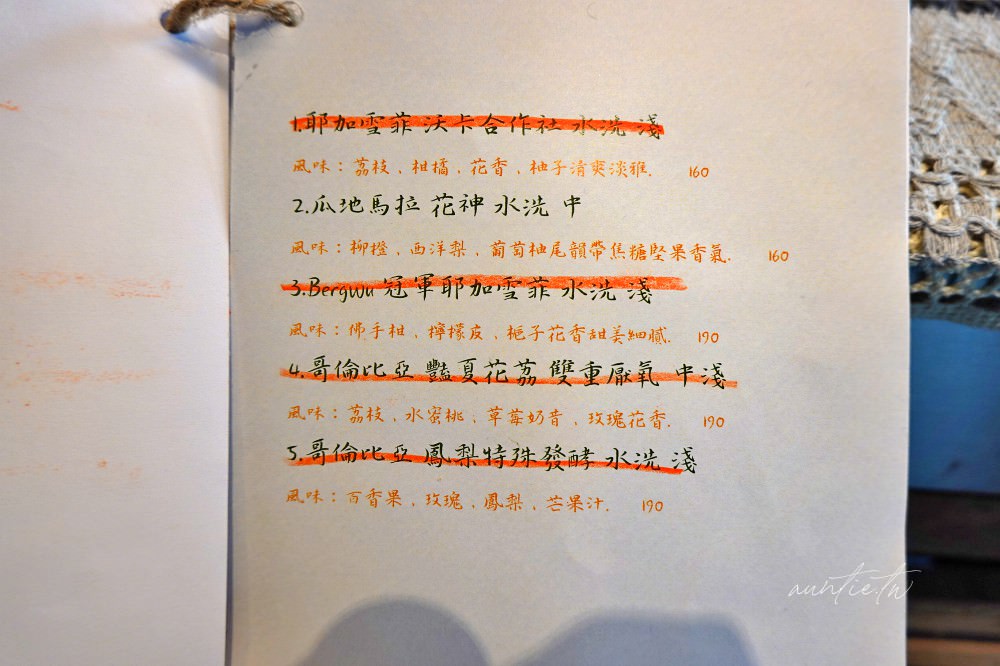 1.耶加雪菲 沃卡合作社 水洗 淺
風味：荔枝、柑橘、花香、柚子清爽淡雅. 160
2.瓜地馬拉 花神 水洗 中
風味：柳橙、西洋梨、葡萄柚尾韻帶焦糖堅果香氣. 160
3.Bergwu 冠軍耶加雪菲 水洗 淺
風味：佛手柑、檸檬皮、梔子花香甜美細膩. 190
4.哥倫比亞 豔夏花荔 雙重厭氧 中淺
風味：荔枝、水蜜桃、草莓奶昔、玫瑰花香. 190
5.哥倫比亞 鳳梨特殊發酵 水洗 淺
風味：百香果、玫瑰、鳳梨、芒果汁. 190
auntie.tw